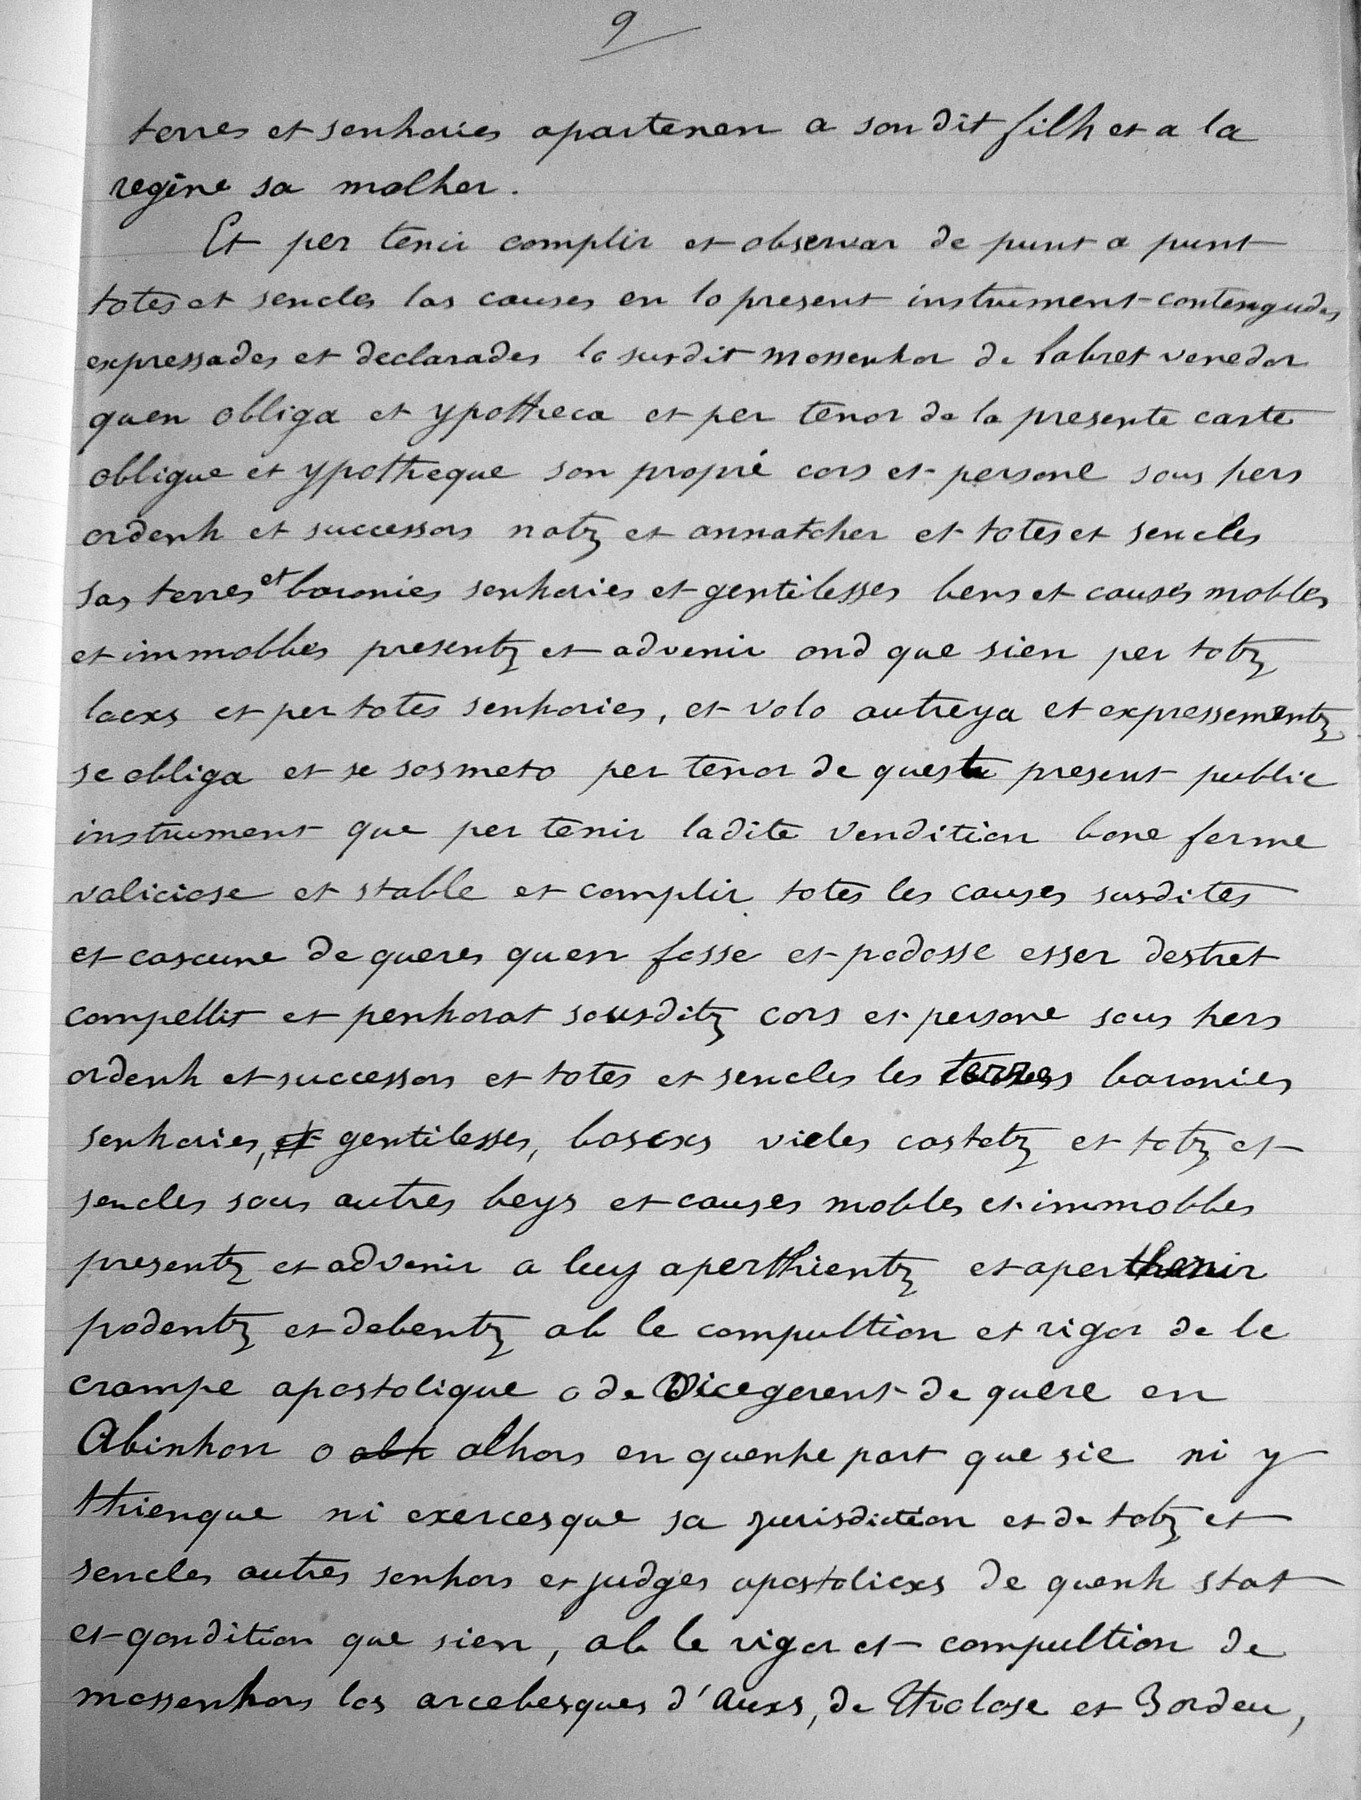 9
terres et senhories apartenen a son dit filh et a la
regine sa molher.
Et per tenir complir et observar de punt a punt
totes et sencles las causes en lo present instrument contengudes
expressades et declarades lo susdit mossenhor de Labret venedor
quen obliga et ypotheca et per tenor de la presente carte
obligue et ypotheque son propri cors et persone sous hers
ordenh et successors natz et a
et totes et sencles
sas terres et baronies senhories et gentilesses bens et causes mobles
et immobles presentz et advenir ond que sien per totz
locxs et per totes senhories, et volo autreya et expressementz
se obliga et se sosmeto per tenor de quest present public
instrument que per tenir ladite vendition bone ferme
valiciose et stable et complir totes les causes susdites
et cascune de queres quen fosse et podosse esser destret
compellit et penhorat sousditz cors et persone sous hers
ordenh et successors et totes et sencles les terres baronies
senhories, et gentilesses, boscxs vieles castetz et totz et
sencles sous autres beys et causes mobles et immobles
presentz et advenir a luy aperthientz et aperthenir
podentz et debentz ab le compultion et rigor de le
crampe apostolique o de Vicegerent de quere en
Abinhon o alhors en quenhe part que sie ni y
thienque ni exercesque sa jurisdiction et de totz et
sencles autres senhors et judges apostolicxs de quenh stat
et qondition que sien, ab le rigor et compultion de
mossenhors los arcebesques d'Auxs, de Tholose et Bordeu,